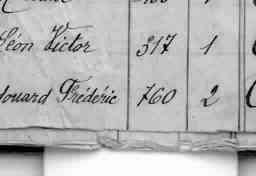 Léon Victor 317 1
douard Frédéric 760 2